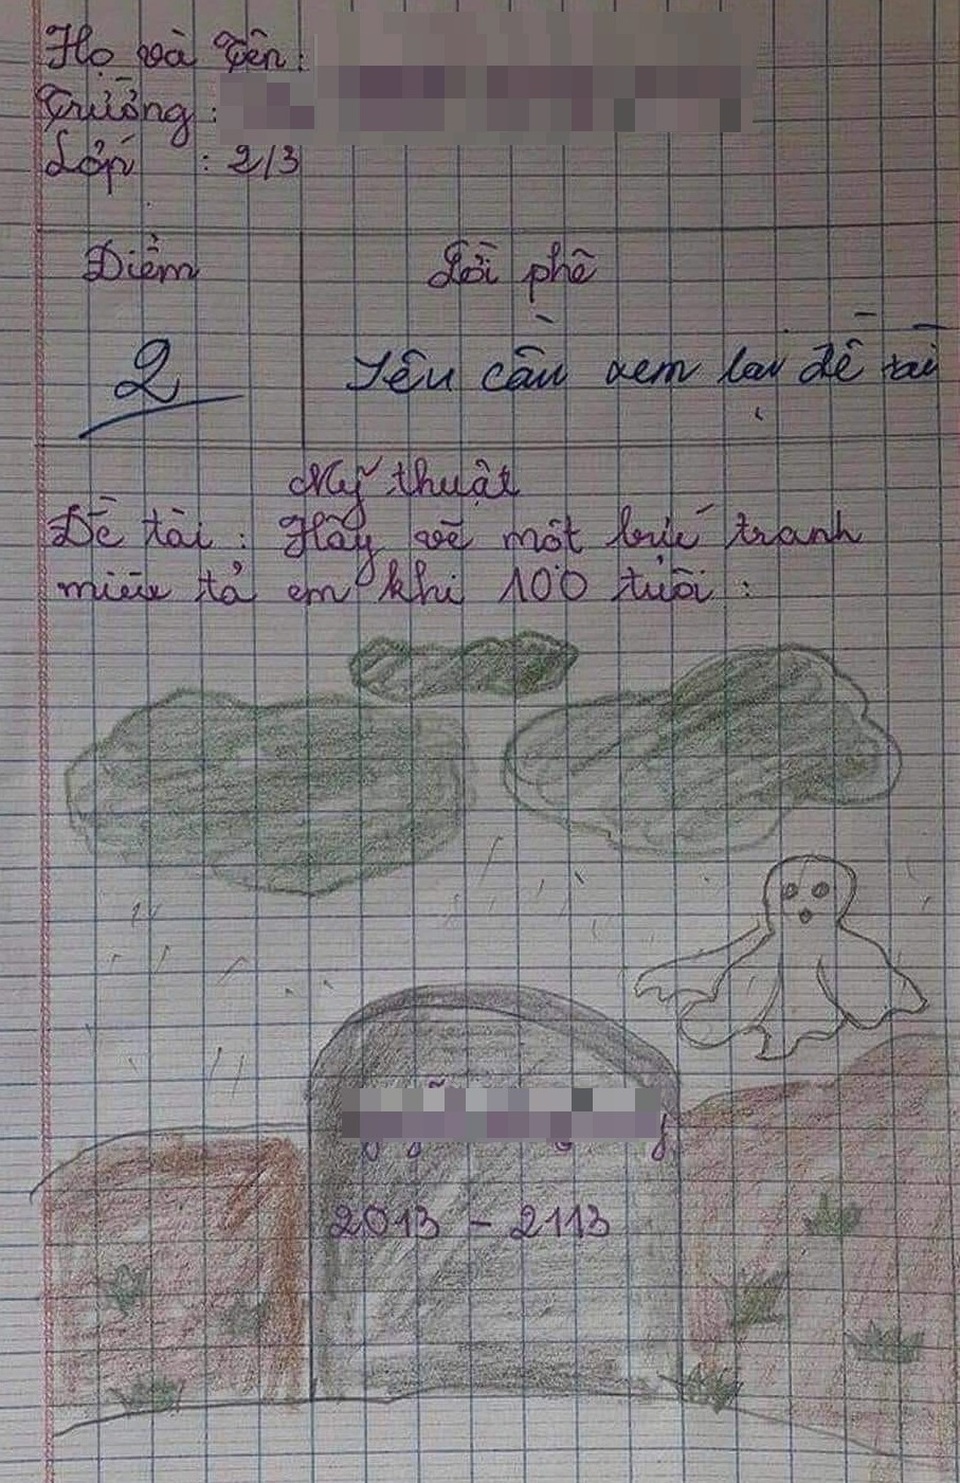 Họ và Tên:
Trường :
Lớp : 2/3
Điểm Lời phê
2 Yêu cầu xem lại đề tài
Mỹ thuật
Đề tài : Hãy vẽ một bức tranh
miêu tả em khi 100 tuổi :
2013 - 2113